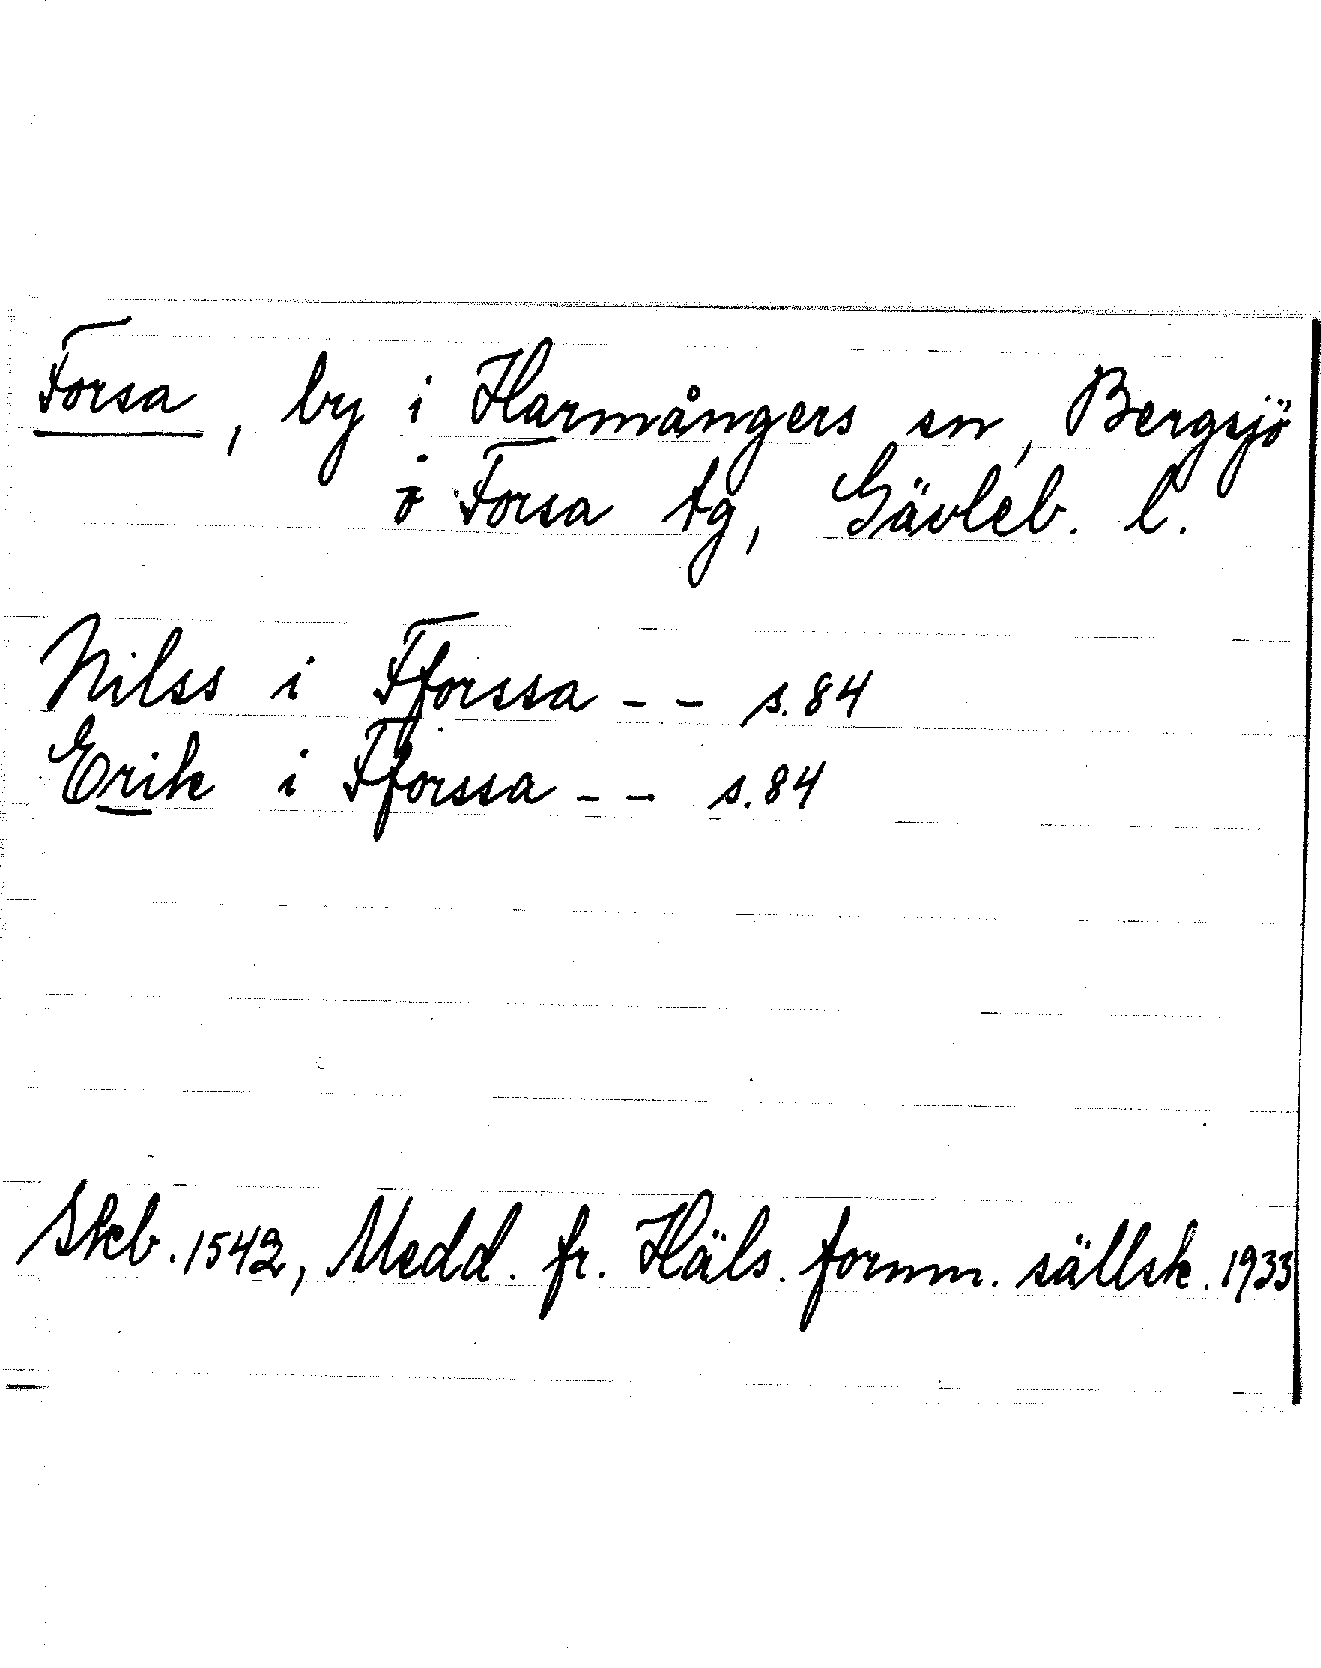 Forsa, by i Harmångers sn, Bergsjö
o Forsa tg, Gävleb. l.
Nilss i Fforssa - - s. 84
Erik i Fforssa - - s. 84
Skb. 1542, Medd. fr. Häls. fornm. sällsk. 1933